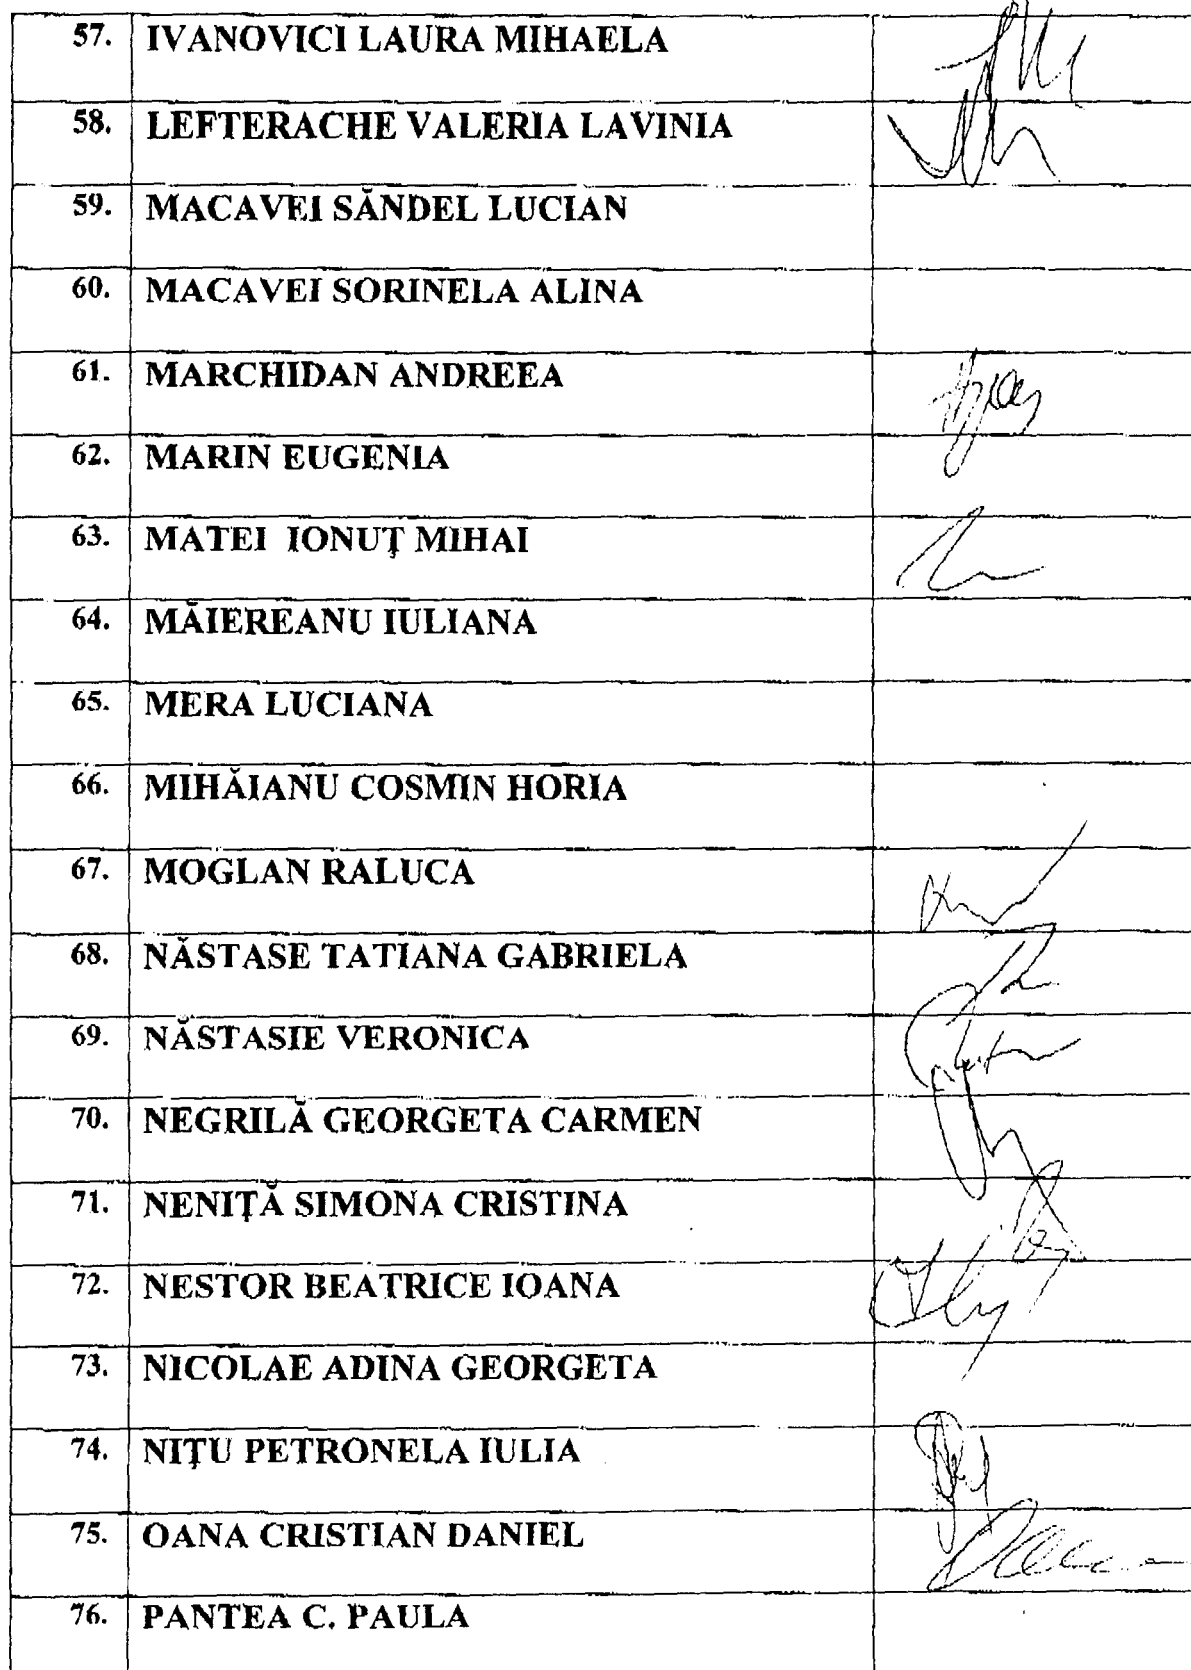 57. IVANOVICI LAURA MIHAELA
58. LEFTERACHE VALERIA LAVINIA
59. MACAVEI SĂNDEL LUCIAN
60. MACAVEI SORINELA ALINA
61. MARCHIDAN ANDREEA
62. MARIN EUGENIA
63. MATEI IONUŢ MIHAI
64. MĂIEREANU IULIANA
65. MERA LUCIANA
66. MIHĂIANU COSMIN HORIA
67. MOGLAN RALUCA
68. NĂSTASE TATIANA GABRIELA
69. NĂSTASIE VERONICA
70. NEGRILĂ GEORGETA CARMEN
71. NENIŢĂ SIMONA CRISTINA
72. NESTOR BEATRICE IOANA
73. NICOLAE ADINA GEORGETA
74. NIŢU PETRONELA IULIA
75. OANA CRISTIAN DANIEL
76. PANTEA C. PAULA